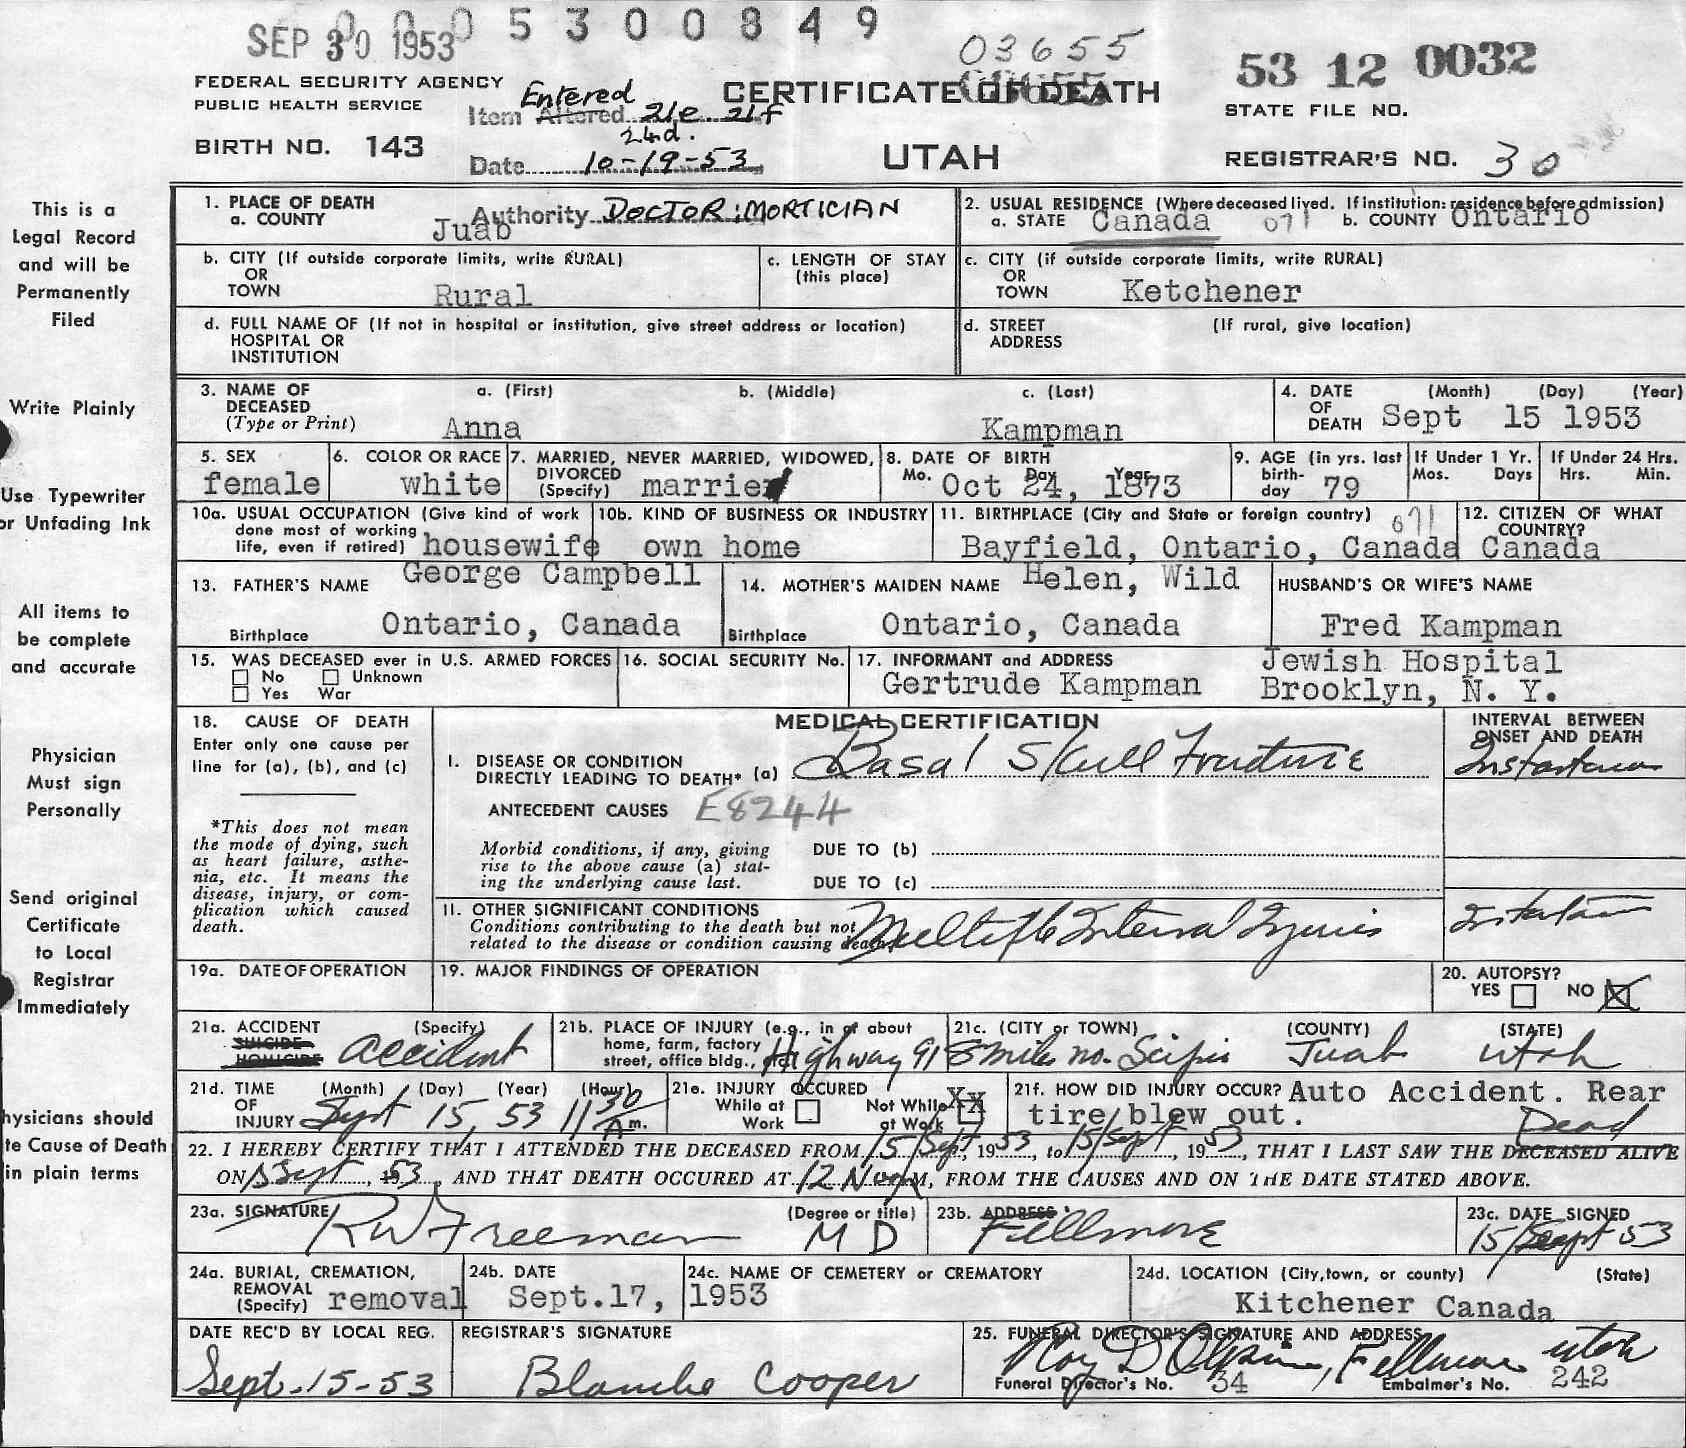 SEP 30 1953
0005300849
03655
53 12 0032
FEDERAL SECURITY AGENCY
PUBLIC HEALTH SERVICE
BIRTH NO. 143
Entered
Item Altered 21e 21f
24d.
Date 10-19-53
CERTIFICATE OF DEATH
UTAH
STATE FILE NO.
REGISTRAR'S NO. 30
This is a
Legal Record
and will be
Permanently
Filed
Write Plainly
Use Typewriter
or Unfading Ink
All items to
be complete
and accurate
Physician
Must sign
Personally
Send original
Certificate
to Local
Registrar
Immediately
hysicians should
te Cause of Death
in plain terms
1. PLACE OF DEATH
a. COUNTY Juab
Authority DOCTOR; MORTICIAN
2. USUAL RESIDENCE (Where deceased lived. If institution: residence before admission)
a. STATE Canada 071 b. COUNTY Ontario
b. CITY (If outside corporate limits, write RURAL)
OR
TOWN Rural
c. LENGTH OF STAY
(this place)
c. CITY (if outside corporate limits, write RURAL)
OR
TOWN Ketchener
d. FULL NAME OF (If not in hospital or institution, give street address or location)
HOSPITAL OR
INSTITUTION
d. STREET (If rural, give location)
ADDRESS
3. NAME OF a. (First) b. (Middle) c. (Last)
DECEASED
(Type or Print) Anna Kampman
4. DATE (Month) (Day) (Year)
OF
DEATH Sept 15 1953
5. SEX
female
6. COLOR OR RACE
white
7. MARRIED, NEVER MARRIED, WIDOWED,
DIVORCED
(Specify) married
8. DATE OF BIRTH
Mo. Day Year
Oct 24, 1873
9. AGE (in yrs. last
birth-
day 79
If Under 1 Yr.
Mos. Days
If Under 24 Hrs.
Hrs. Min.
10a. USUAL OCCUPATION (Give kind of work
done most of working
life, even if retired) housewife
10b. KIND OF BUSINESS OR INDUSTRY
own home
11. BIRTHPLACE (City and State or foreign country) 071
Bayfield, Ontario, Canada
12. CITIZEN OF WHAT
COUNTRY?
Canada
13. FATHER'S NAME George Campbell
Birthplace Ontario, Canada
14. MOTHER'S MAIDEN NAME Helen, Wild
Birthplace Ontario, Canada
HUSBAND'S OR WIFE'S NAME
Fred Kampman
15. WAS DECEASED ever in U.S. ARMED FORCES
No Unknown
Yes War
16. SOCIAL SECURITY No.
17. INFORMANT and ADDRESS Jewish Hospital
Gertrude Kampman Brooklyn, N. Y.
18. CAUSE OF DEATH
Enter only one cause per
line for (a), (b), and (c)
*This does not mean
the mode of dying, such
as heart failure, asthe-
nia, etc. It means the
disease, injury, or com-
plication which caused
death.
MEDICAL CERTIFICATION
INTERVAL BETWEEN
ONSET AND DEATH
I. DISEASE OR CONDITION
DIRECTLY LEADING TO DEATH* (a) Basal Skull Fracture
ANTECEDENT CAUSES E8244
Morbid conditions, if any, giving
rise to the above cause (a) stat-
ing the underlying cause last.
DUE TO (b)
DUE TO (c)
II. OTHER SIGNIFICANT CONDITIONS
Conditions contributing to the death but not
related to the disease or condition causing death. Multiple Internal Injuries
19a. DATE OF OPERATION
19. MAJOR FINDINGS OF OPERATION
20. AUTOPSY?
YES NO X
21a. ACCIDENT (Specify)
SUICIDE
HOMICIDE accident
21b. PLACE OF INJURY (e.g., in or about
home, farm, factory
street, office bldg., Highway 91
21c. (CITY or TOWN) (COUNTY) (STATE)
8 miles no. Scipio Juab Utah
21d. TIME (Month) (Day) (Year) (Hour)
OF
INJURY Sept 15, 53 11 30 Am.
21e. INJURY OCCURED
While at Work
Not While at Work XX
21f. HOW DID INJURY OCCUR? Auto Accident. Rear
tire blew out.
Dead
22. I HEREBY CERTIFY THAT I ATTENDED THE DECEASED FROM 15/Sept, 1953, to 15/Sept, 1953, THAT I LAST SAW THE DECEASED ALIVE
ON 15 Sept, 1953, AND THAT DEATH OCCURED AT 12 Noon M, FROM THE CAUSES AND ON THE DATE STATED ABOVE.
23a. SIGNATURE (Degree or title)
RW Freeman M D
23b. ADDRESS
Fillmore
23c. DATE SIGNED
15/Sept 53
24a. BURIAL, CREMATION,
REMOVAL
(Specify) removal
24b. DATE
Sept.17, 1953
24c. NAME OF CEMETERY or CREMATORY
24d. LOCATION (City, town, or county) (State)
Kitchener Canada
DATE REC'D BY LOCAL REG.
Sept-15-53
REGISTRAR'S SIGNATURE
Blanche Cooper
25. FUNERAL DIRECTOR'S SIGNATURE AND ADDRESS
Roy D Olpin, Fillmore Utah
Funeral Director's No. 34 Embalmer's No. 242